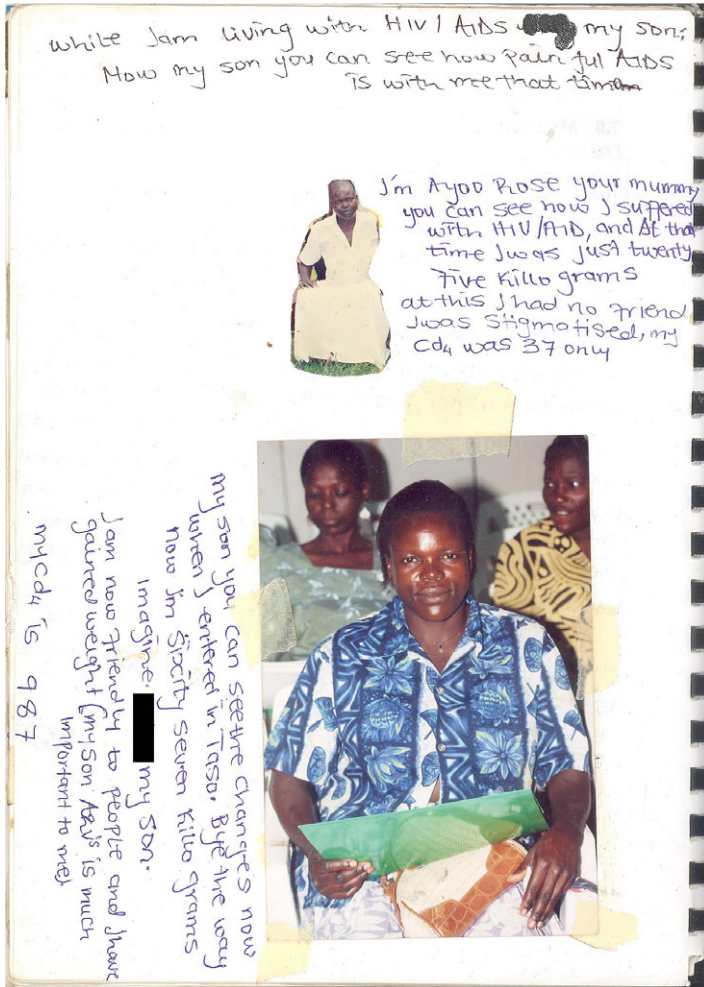 while Jam living with HIV/AIDS my son;
How my son you can see how Pain ful AIDS
is with mee that time
J'm Ayoo Rose your mummy
you can see how J suffered
with HIV/AID, and At that
time Jwas just twenty
Five Killo grams
at this Jhad no Friend
Jwas Stigmatised, my
Cd4 was 37 only
my son you can see the changes now
when J entered in Taso. Bye the way
now Jm Sixcity seven Killo grams
imagine. my son.
Jam now Friendly to people and Jhave
gained weight (my son ARV's is much
important to me)
my Cd4 is 987